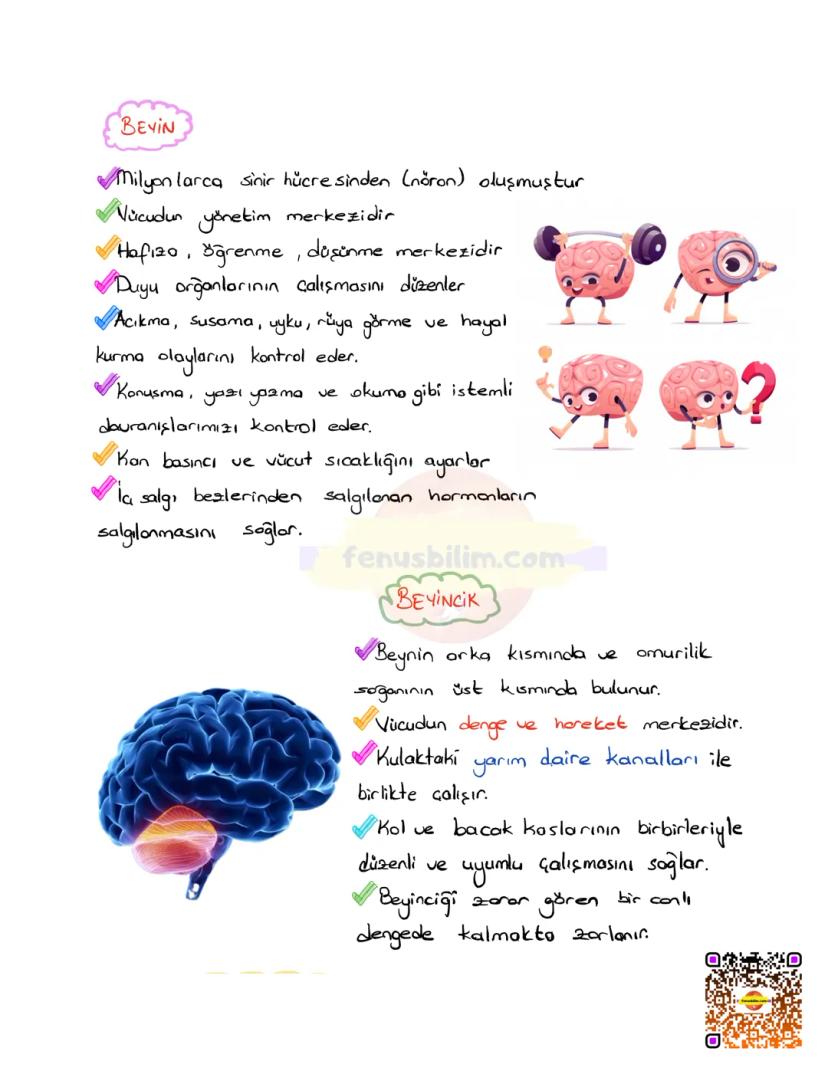 BEYİN
Milyonlarca sinir hücresinden (nöron) oluşmuştur
Vücudun yönetim merkezidir
Hafıza, öğrenme, düşünme merkezidir
Duyu organlarının çalışmasını düzenler
Acıkma, susama, uyku, rüya görme ve hayal
kurma olaylarını kontrol eder.
Konuşma, yazı yazma ve okuma gibi istemli
davranışlarımızı kontrol eder.
Kan basıncı ve vücut sıcaklığını ayarlar
İç salgı bezlerinden salgılanan hormonların
salgılanmasını sağlar.
fenusbilim.com
BEYİNCİK
Beynin arka kısmında ve omurilik
soğanının üst kısmında bulunur.
Vücudun denge ve hareket merkezidir.
Kulaktaki yarım daire kanalları ile
birlikte çalışır.
Kol ve bacak kaslarının birbirleriyle
düzenli ve uyumlu çalışmasını sağlar.
Beyinciği zarar gören bir canlı
dengede kalmakta zorlanır.
fenusbilim.com